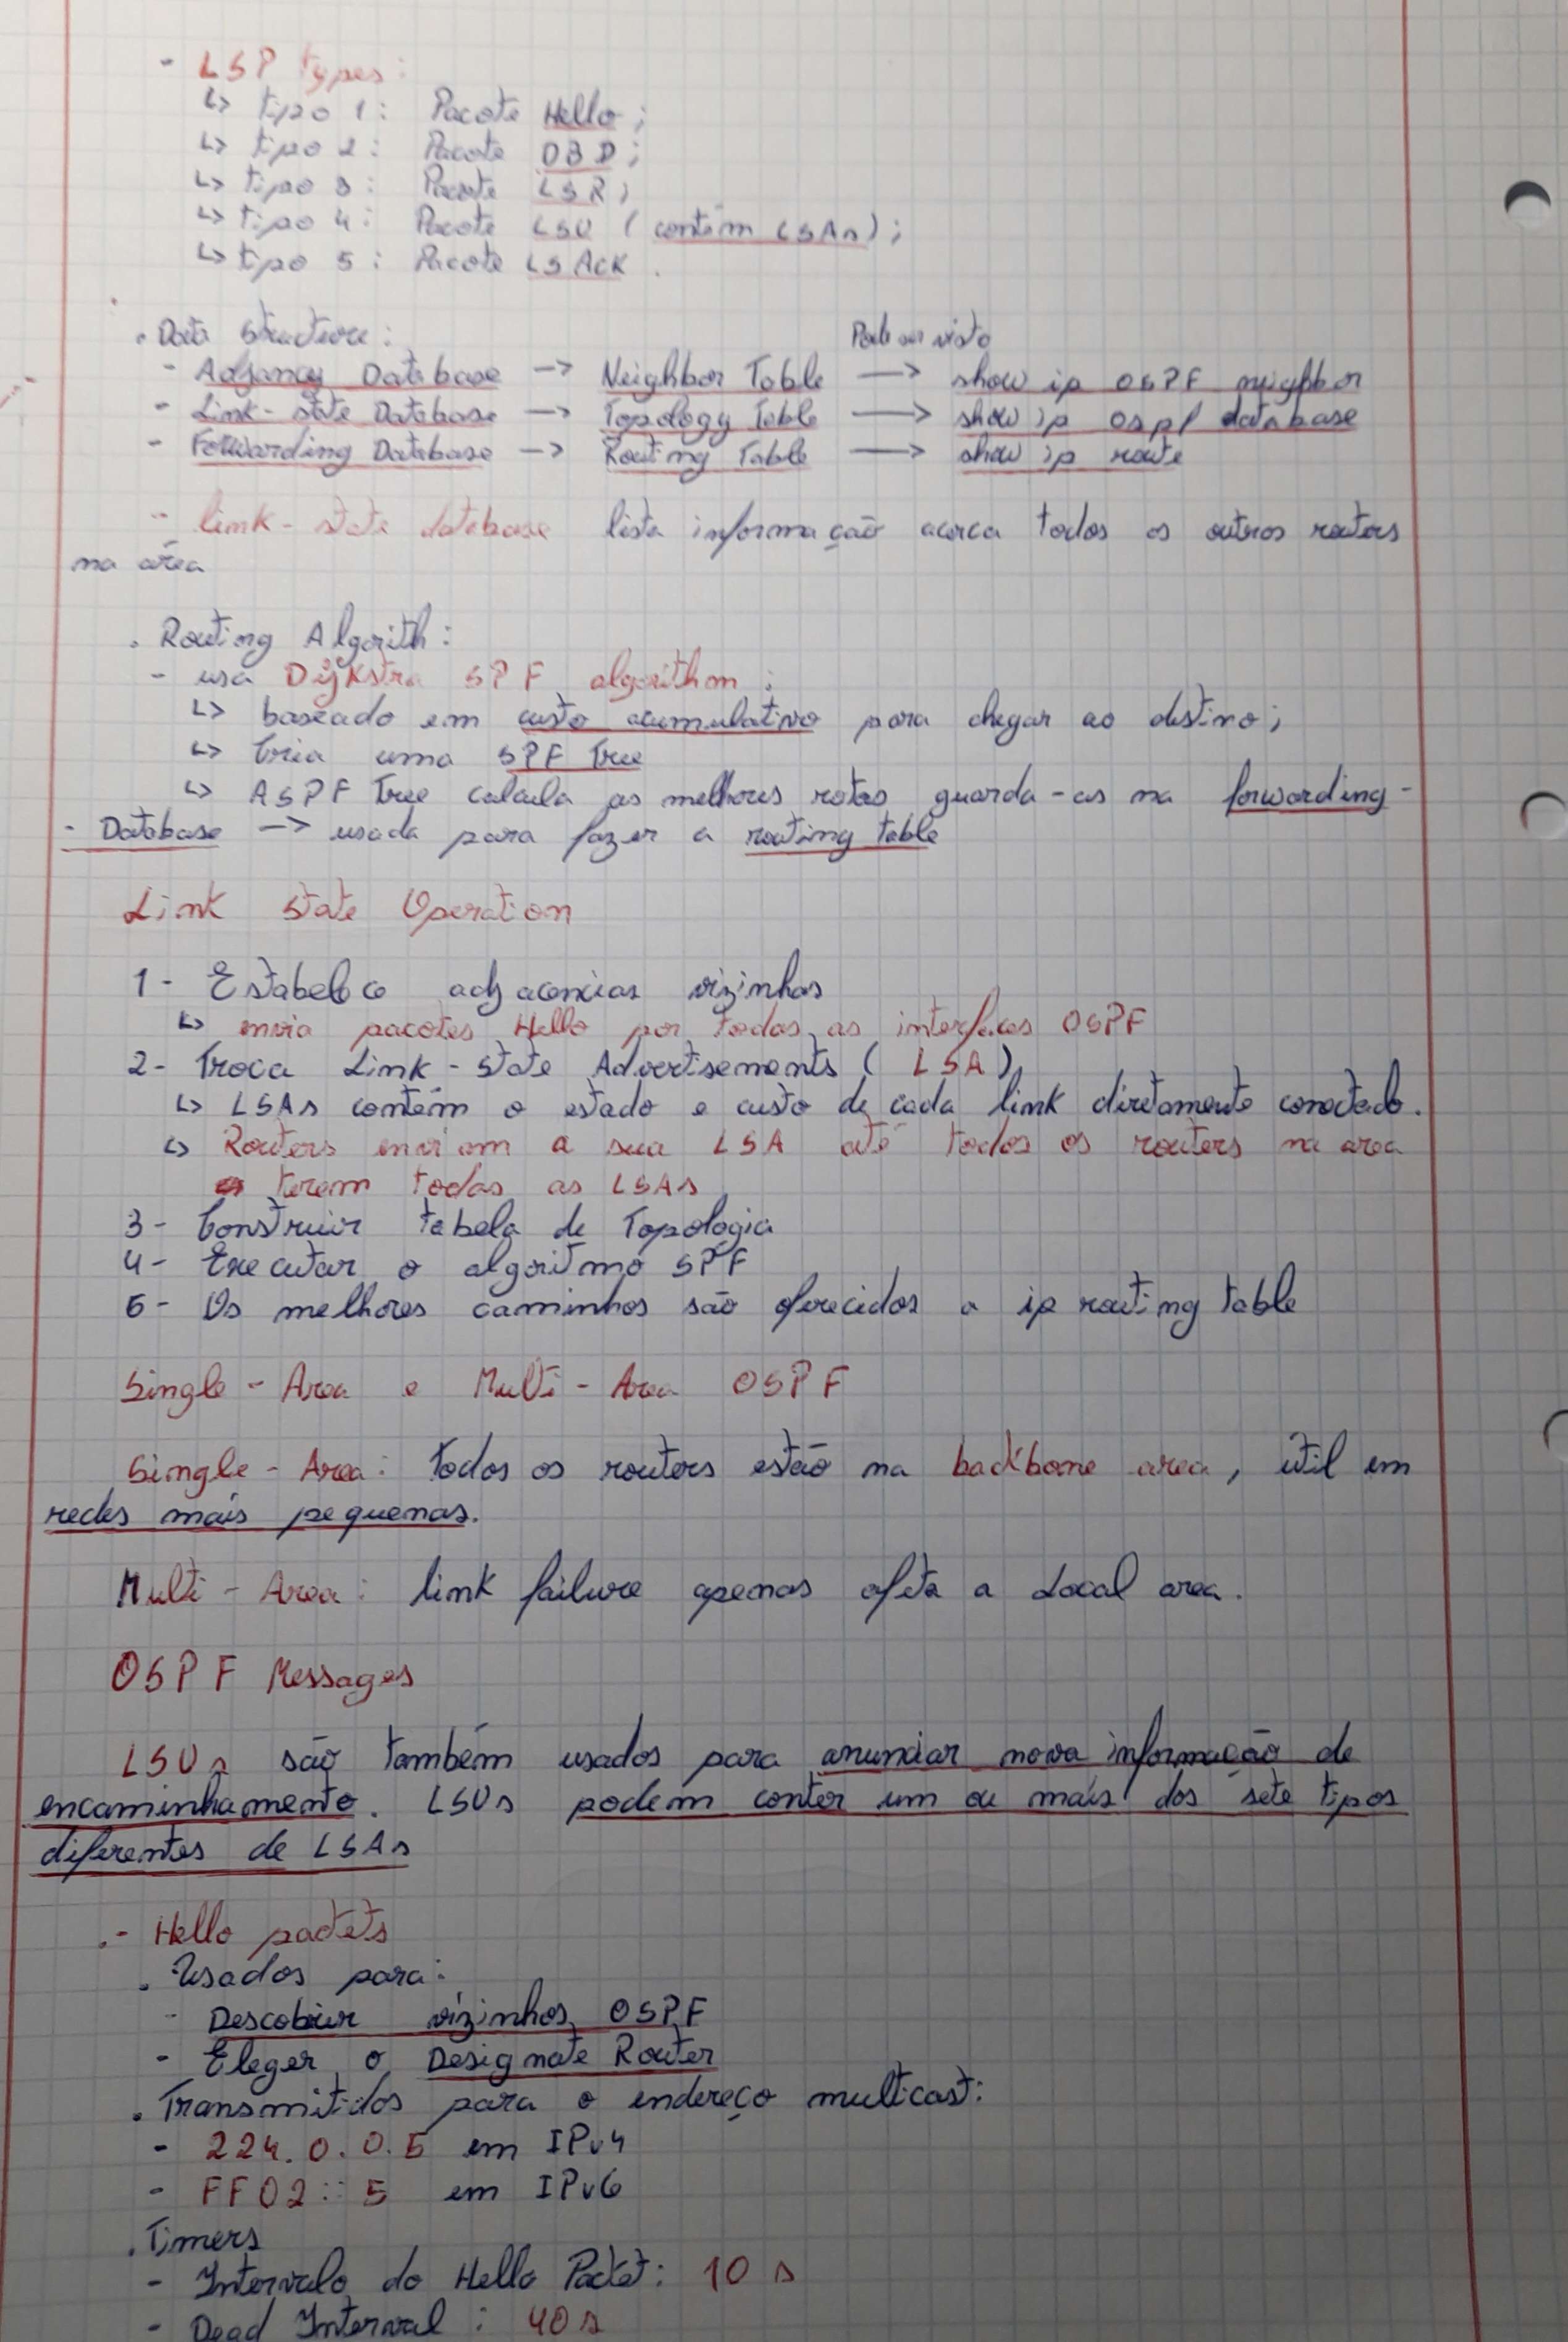 - LSP types:
↳ tipo 1: Pacote Hello;
↳ tipo 2: Pacote DBD;
↳ tipo 3: Pacote LSR;
↳ tipo 4: Pacote LSU (contém LSAs);
↳ tipo 5: Pacote LSAck.
. Data Structure: Pode ser visto
- Adjancy Database -> Neighbor Table -> show ip OSPF neighbor
- Link-state Database -> Topology Table -> show ip ospf database
- Forwarding Database -> Routing Table -> show ip route
- link-state database lista informação acerca todos os outros routers
na área
. Routing Algorith:
- usa Dijkstra SPF algorithm:
↳ baseado em custo acumulativo para chegar ao destino;
↳ Cria uma SPF Tree
↳ A SPF Tree calcula as melhores rotas guarda-as na forwarding-
- Database -> usada para fazer a routing table
Link State Operation
1- Estabelece adjacencias vizinhas
↳ envia pacotes Hello por todas as interfaces OSPF
2- Troca Link-State Advertisements (LSA)
↳ LSAs contém o estado e custo de cada link diretamente conectado.
↳ Routers enviam a sua LSA até todos os routers na area
terem todas as LSAs
3- Construir tabela de Topologia
4- Executar o algoritmo SPF
5- Os melhores caminhos são oferecidos a ip routing table
Single-Area e Multi-Area OSPF
Single-Area: Todos os routers estão na backbone area, útil em
redes mais pequenas.
Multi-Area: link failure apenas afeta a Local area.
OSPF Messages
LSUs são também usados para anunciar nova informação de
encaminhamento. LSUs podem conter um ou mais dos sete tipos
diferentes de LSAs
.- Hello packets
. Usados para:
- Descobrir vizinhos OSPF
- Eleger o Designate Router
. Transmitidos para o endereço multicast:
- 224.0.0.5 em IPv4
- FF02::5 em IPv6
. Timers
- Intervalo do Hello Packet: 10 s
- Dead Interval: 40 s